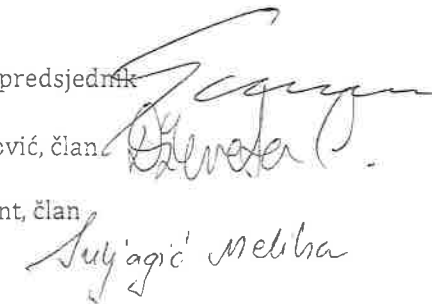 predsjednik
ović, član
nt, član
Suljagić Meliha